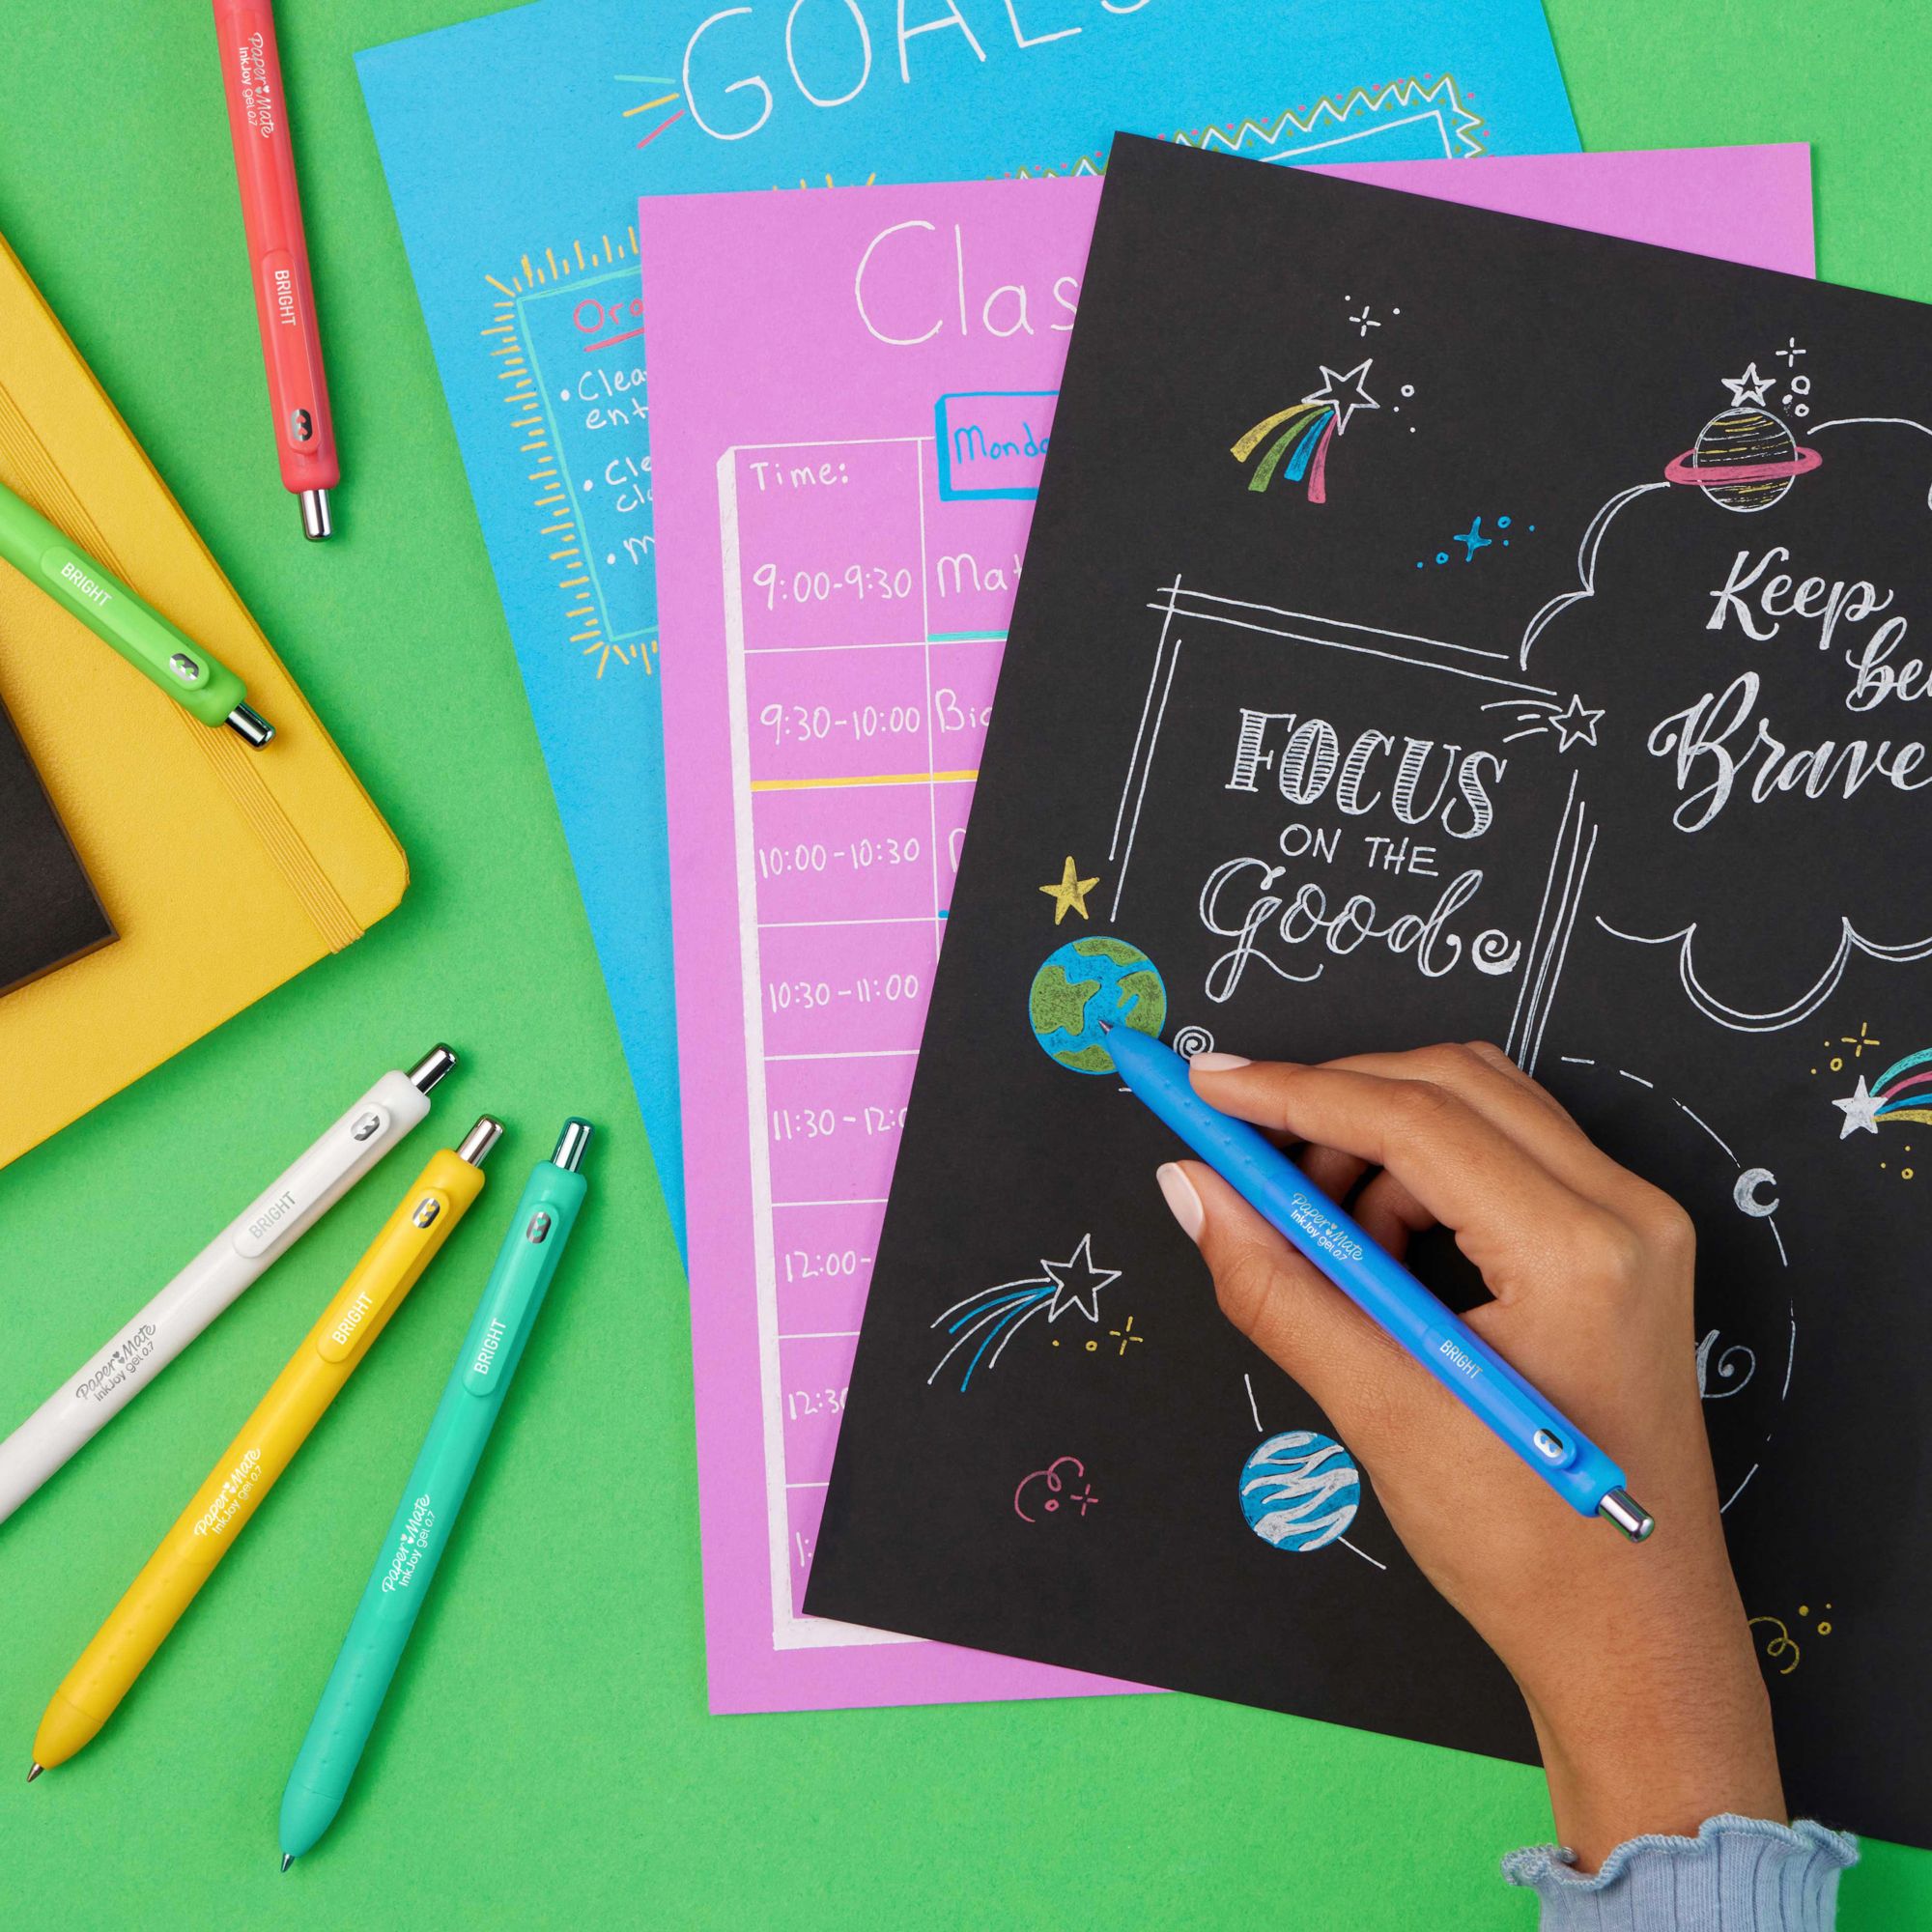 GOALS
Clas
Time:
Monda
9:00-9:30
Mat
9:30-10:00
Bio
10:00-10:30
10:30-11:00
11:30-12:0
12:00-
12:30
1:
• Clea
ent
• Cle
cla
• m
Keep
be
Brave
FOCUS
ON THE
Good
Paper Mate
InkJoy gel 0.7
BRIGHT
BRIGHT
Paper Mate
InkJoy gel 0.7
BRIGHT
Paper Mate
InkJoy gel 0.7
BRIGHT
Paper Mate
InkJoy gel 0.7
BRIGHT
Paper Mate
InkJoy gel 0.7
BRIGHT